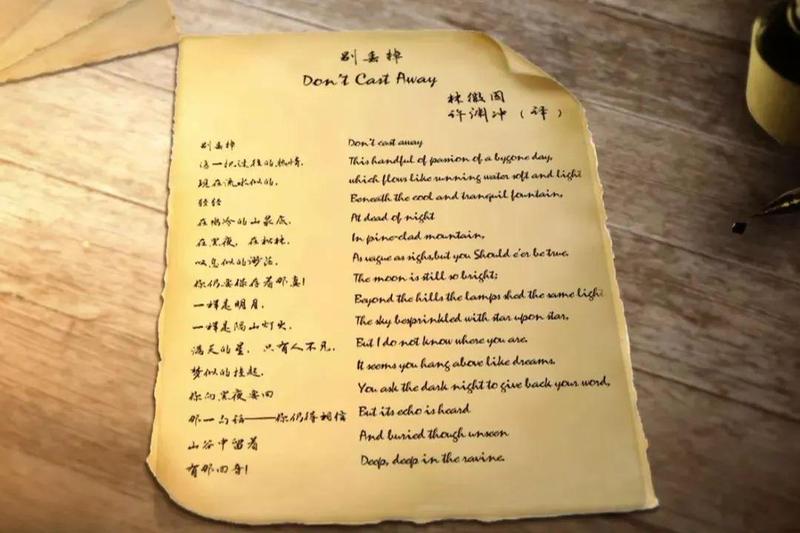 别丢掉
Don't Cast Away
林徽因
许渊冲（译）
别丢掉
这一把过往的热情,
现在流水似的,
轻轻
在幽冷的山泉底,
在黑夜,在松林,
叹息似的渺茫,
你仍要保存着那真!
一样是明月,
一样是隔山灯火,
满天的星,只有人不见,
梦似的挂起,
你向黑夜要回
那一句话——你仍得相信
山谷中留着
有那回音!
Don't cast away
This handful of passion of a bygone day,
which flows like running water soft and light
Beneath the cool and tranquil fountain,
At dead of night
In pine-clad mountain,
As vague as sighs,but you Should e'er be true.
The moon is still so bright;
Beyond the hills the lamps shed the same light
The sky besprinkled with star upon star,
But I do not know where you are.
It seems you hang above like dreams.
You ask the dark night to give back your word,
But its echo is heard
And buried though unseen
Deep, deep in the ravine.